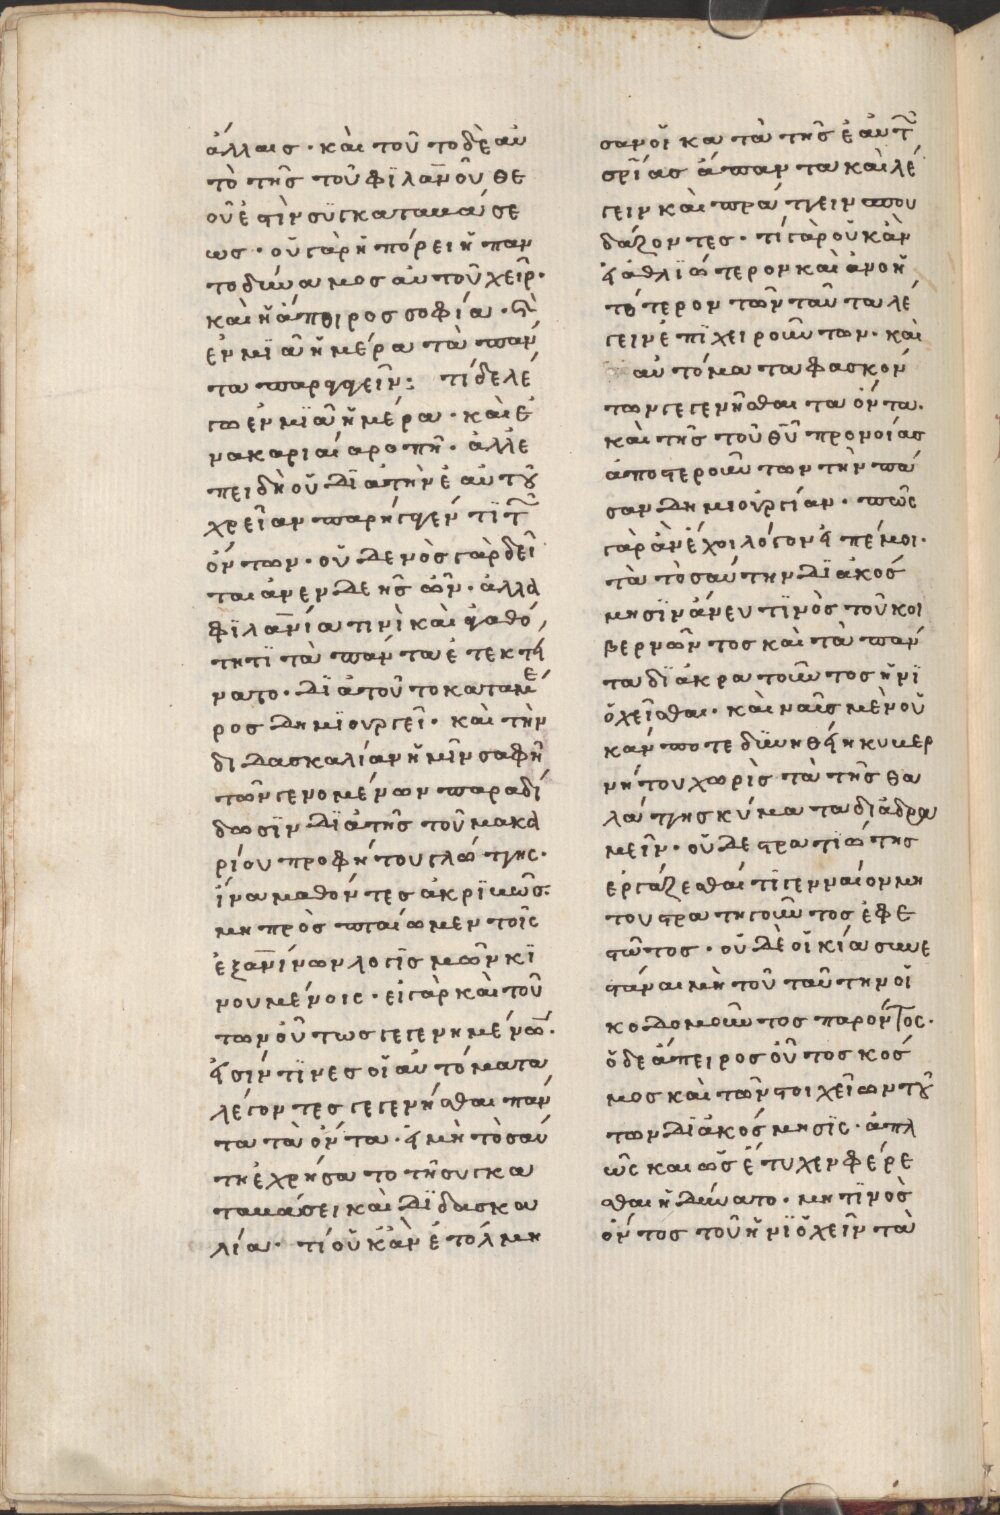 ἀλλαις · καὶ τοῦτο δὲ αὐ
τὸ τῆς τοῦ φϊλαν̅ου θε
οῦ ἐστὶν συγκαταβάσε
ως · οὐ γὰρ ἠπόρει ἡ παν
τοδύναμος αὐτοῦ χεὶρ ·
καὶ ἡ ἄπειρος σοφία ·
ἐν μϊᾶ ἡμέρα τὰ πάν
τα παραγαγεῖν : τί δὲ λέ
γω ἐν μϊᾶ ἡμέρα · καὶ ἐ
ν ἀκαριαία ροπῆ · ἀλλ' ἐ
πειδὴ οὐ δϊὰ τὴν ἑαυτοῦ
χρεῖαν παρήγαγέν τϊ τῶν
ὄντων · οὐδενὸς γὰρ δεῖ
ται ἀνενδεὴς ὤν · ἀλλὰ
φϊλαν̅ία τινὶ καὶ ἀγαθό
τητϊ τὰ πάντα ἐτεκτή
νατο · δϊὰ τοῦτο κατὰ μέ
ρος δημϊουργεῖ · καὶ τὴν
διδασκαλίαν ἡμῖν σαφῆ
τῶν γενομένων παραδί
δωσϊν δϊὰ τῆς τοῦ μακα
ρίου προφήτου γλώττης ·
ἵνα μαθόντες ἀκρϊβῶς ·
μὴ προσπταίωμεν τοῖς
ἐξ ἀν̅ίνων λογϊσμῶν κϊ
νουμένοις · εἰ γὰρ καὶ τού
των οὕτως γεγενημένων ·
εἰσίν τϊνες οἳ αὐτόματα
λέγοντες γεγενῆσθαι πάν
τα τὰ ὄντα · εἰ μὴ τοσαύ
τη ἐχρήσατο τῆ συγκα
ταβάσει καὶ δϊδασκα
λία · τί οὐκ ἂν ἐτόλμη
σαν οἳ κατὰ τῆς ἑαυτῶν
σρ̅ίας ἅπαντα καὶ λέ
γειν καὶ πράττειν σπου
δάζοντες · τί γὰρ οὐκ ἂν
εἴη ἀθλϊώτερον καὶ ἀνοη
τότερον τῶν ταῦτα λέ
γειν ἐπϊχειρούντων · καὶ
αὐτόματα φασκόν
των γεγενῆσθαι τὰ ὄντα ·
καὶ τῆς τοῦ θυ̅ προνοίας
ἀποστερούντων τὴν πᾶ
σαν δημιουργίαν · πῶς
γὰρ ἂν ἔχοι λόγον εἰπέ μοι ·
τὰ τοσαύτην δϊακόσ
μησϊν ἄνευ τϊνὸς τοῦ κοι
βερνῶντος καὶ τὰ πάν
τα δϊακρατοῦντος ἡνϊ
οχεῖσθαι · καὶ ναῦς μὲν οὐ
κ ἄν ποτε δυνηθείη κυβερ
νήτου χωρὶς τὰ τῆς θα
λάττης κύματα διαδρα
μεῖν · οὐδὲ στρατϊώτης
ἐργάζεσθαί τϊ γενναῖον μὴ
τοῦ στρατηγοῦντος ἐφε
στῶτος · οὐδὲ οἰκία συνε
στάναι μὴ τοῦ ταύτην οἰ
κοδομοῦντος παρόντος ·
ὁ δὲ ἄπειρος οὗτος κόσ
μος καὶ τῶν στοιχείων τού
των δϊακόσμησϊς · ἁπλ
ῶς καὶ ὡς ἔτυχεν φέρε
σθαι ἠδύνατο · μὴ τϊνὸς
ὄντος τοῦ ἡνϊοχεῖν τὰ